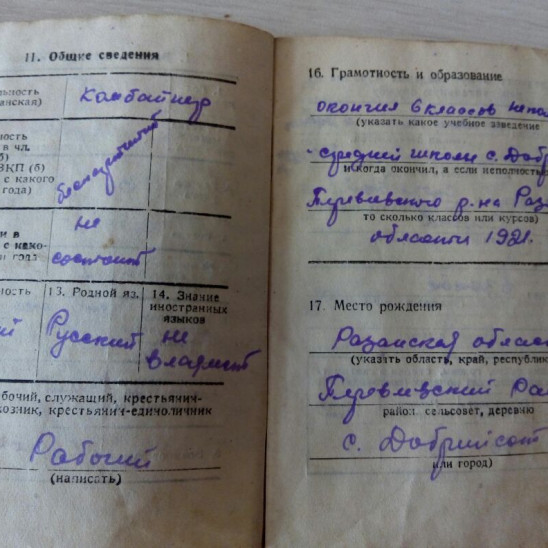 11. Общие сведения
льность
анская)
Комбайнер
ность
в чл.
б)
ВКП (б)
с какого
года)
беспартийный
и в
с како-
года
не
состоит
ность
13. Родной яз.
14. Знание
иностранных
языков
ий
Русский
не
владеет
бочий, служащий, крестьянин-
хозник, крестьянин-единоличник
Рабочий
(написать)
16. Грамотность и образование
окончил 6 классов непол
(указать какое учебное заведение
средней школы с. Доб
и когда окончил, а если неполность
р-на Ряз
то сколько классов или курсов)
области 1921.
17. Место рождения
Рязанская област
(указать область, край, республик
район, сельсовет, деревню
с.
или город)